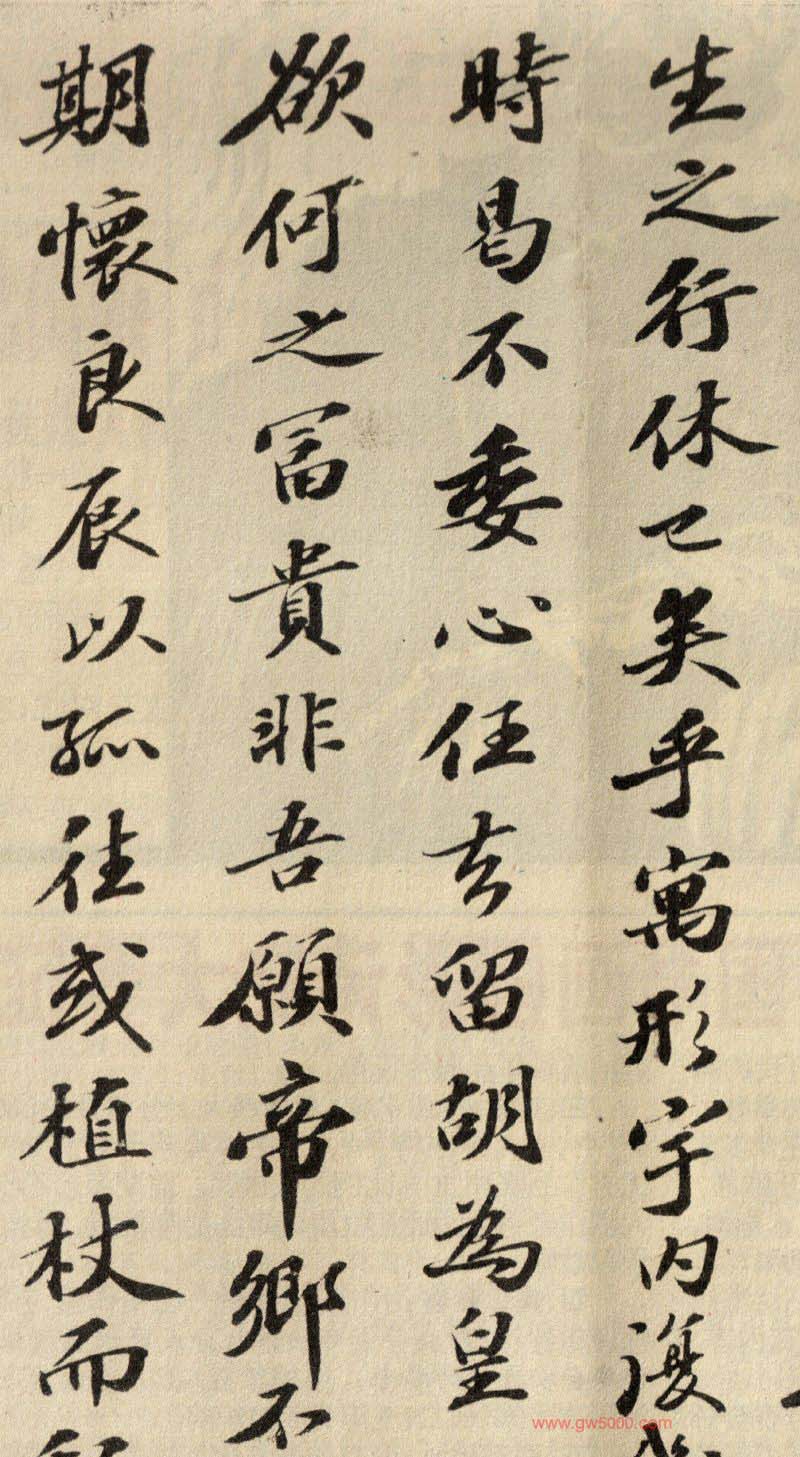 生之行休已矣乎寓形宇内復
時曷不委心任去留胡為皇
欲何之富貴非吾願帝鄉不
期懷良辰以孤往或植杖而
www.gw5000.com